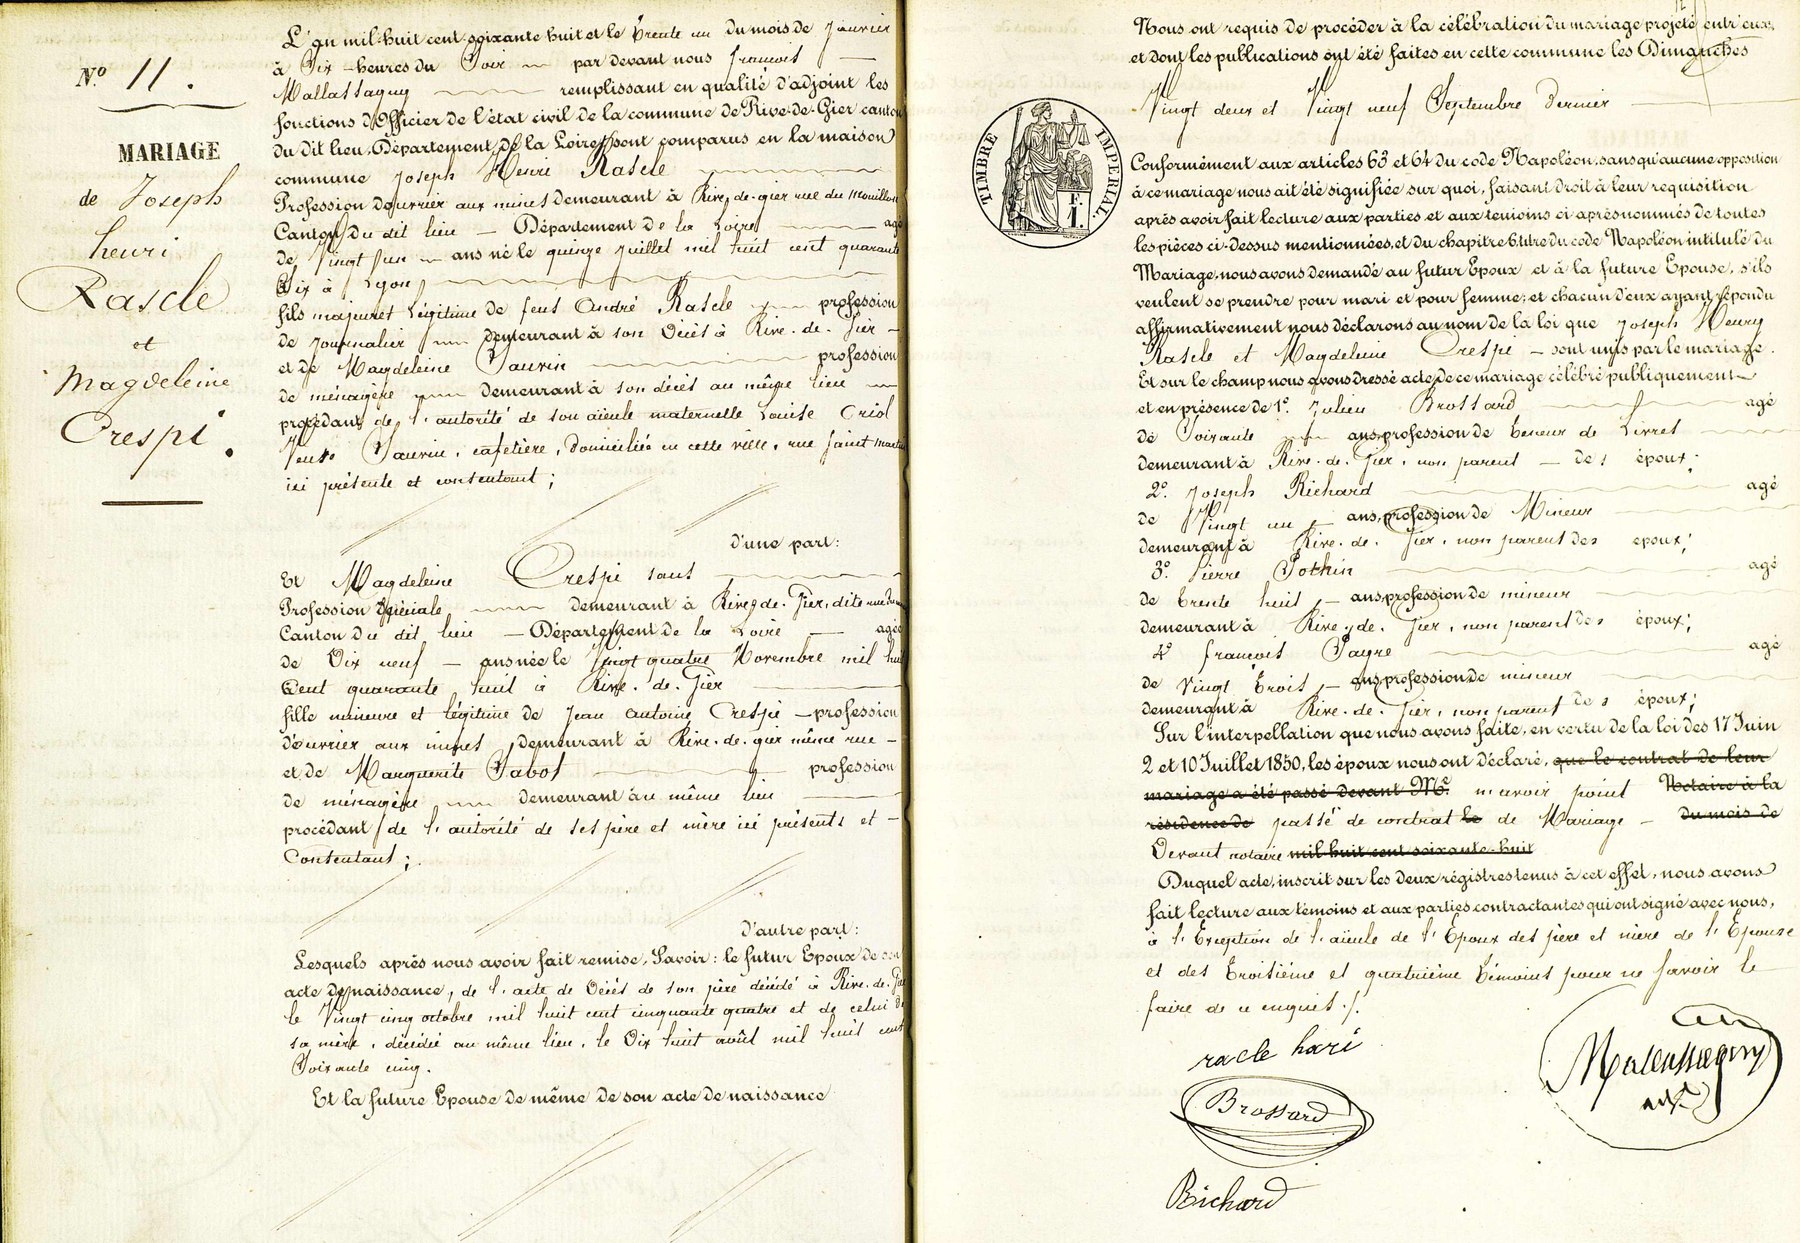 N.º 11.
MARIAGE
de Joseph
henri
Rascle
et
Magdeleine
Crespi.
L'an mil-huit cent-soixante huit et le trente un du mois de Janvier
à Six heures du Soir par devant nous francois
Mallassagny remplissant en qualité d'adjoint les
fonctions d'Officier de l'état civil de la commune de Rive-de-Gier canton
du dit lieu, Département de la Loire, sont comparus en la maison
commune Joseph Henri Rascle
Profession d'ouvrier aux mines demeurant à Rive-de-gier rue du Mouillon
Canton du dit lieu — Département de la Loire agé
de Vingt un ans né le quinze Juillet mil huit cent quarante
Six à Lyon
fils majeur et légitime de feus André Rascle profession
de journalier demeurant à son Décès à Rive-de-Gier
et de Magdeleine Saurin profession
de ménagère demeurant à son décès au même lieu
procédant de l'autorité de son aïeule maternelle Louise Oriol
Veuve Saurin, cafetière, domiciliée en cette ville, rue Saint Martin
ici présente et consentant;
d'une part:
Et Magdeleine Crespi sans
Profession spéciale demeurant à Rive-de-Gier, dite rue
Canton du dit lieu — Département de la Loire agée
de Dix neuf — ans née le Vingt quatre Novembre mil huit
Cent quarante huit à Rive-de-Gier
fille mineure et légitime de Jean Antoine Crespi — profession
d'ouvrier aux mines, demeurant à Rive-de-gier même rue
et de Marguerite Sabot profession
de ménagère demeurant au même lieu
procédant de l'autorité de ses père et mère ici présents et
Consentant;
D'autre part:
Lesquels après nous avoir fait remise, Savoir: le futur Epoux de son
acte de naissance, de l'acte de Décès de son père décédé à Rive-de-Gier
le Vingt cinq octobre mil huit cent cinquante quatre et de celui de
sa mère, décédée au même lieu, le Dix huit août mil huit cent
Soixante cinq.
Et la future Epouse de même de son acte de naissance
Nous ont requis de procéder à la célébration du mariage projeté entr'eux,
et dont les publications ont été faites en cette commune les Dimanches
Vingt deux et Vingt neuf Septembre dernier
TIMBRE IMPERIAL
F.
1.
Conformément aux articles 63 et 64 du code Napoléon, sans qu'aucune opposition
à ce mariage nous ait été signifiée sur quoi, faisant droit à leur requisition
après avoir fait lecture aux parties et aux témoins ci après nommés de toutes
les pièces ci-dessus mentionnées, et du chapitre 6, titre du code Napoléon intitulé du
Mariage, nous avons demandé au futur Epoux et à la future Epouse, s'ils
veulent se prendre pour mari et pour femme; et chacun d'eux ayant répondu
affirmativement nous déclarons au nom de la loi que Joseph Henry
Rascle et Magdeleine Crespi — sont unis par le mariage.
Et sur le champ nous avons dressé acte de ce mariage célébré publiquement
et en présence de 1º. Julien Brossard agé
de Soixante ans, profession de teneur de Livret
demeurant à Rive-de-Gier, non parent — des époux;
2º. Joseph Richard agé
de Vingt un — ans, profession de Mineur
demeurant à Rive-de-Gier, non parent des époux;
3º. Pierre Pothin agé
de trente huit — ans, profession de mineur
demeurant à Rive-de-Gier, non parent des époux;
4º francois Payre agé
de Vingt trois — ans, profession de mineur
demeurant à Rive-de-Gier, non parent des époux;
Sur l'interpellation que nous avons faite, en vertu de la loi des 17 Juin
2 et 10 Juillet 1850, les époux nous ont déclaré, que le contrat de leur
mariage a été passé devant Mᵉ. n'avoir point Notaire à la
résidence de passé de contrat le de Mariage — du mois de
Devant notaire mil-huit cent soixante-huit
Duquel acte, inscrit sur les deux régistres tenus à cet effet, nous avons
fait lecture aux témoins et aux parties contractantes qui ont signé avec nous,
à l'Exception de l'aïeule de l'Epoux des père et mère de l'Epouse
et des troisième et quatrième témoins pour ne savoir le
faire de ce enquis./.
racle hari
Brossard
Malassagny
adt
Richard